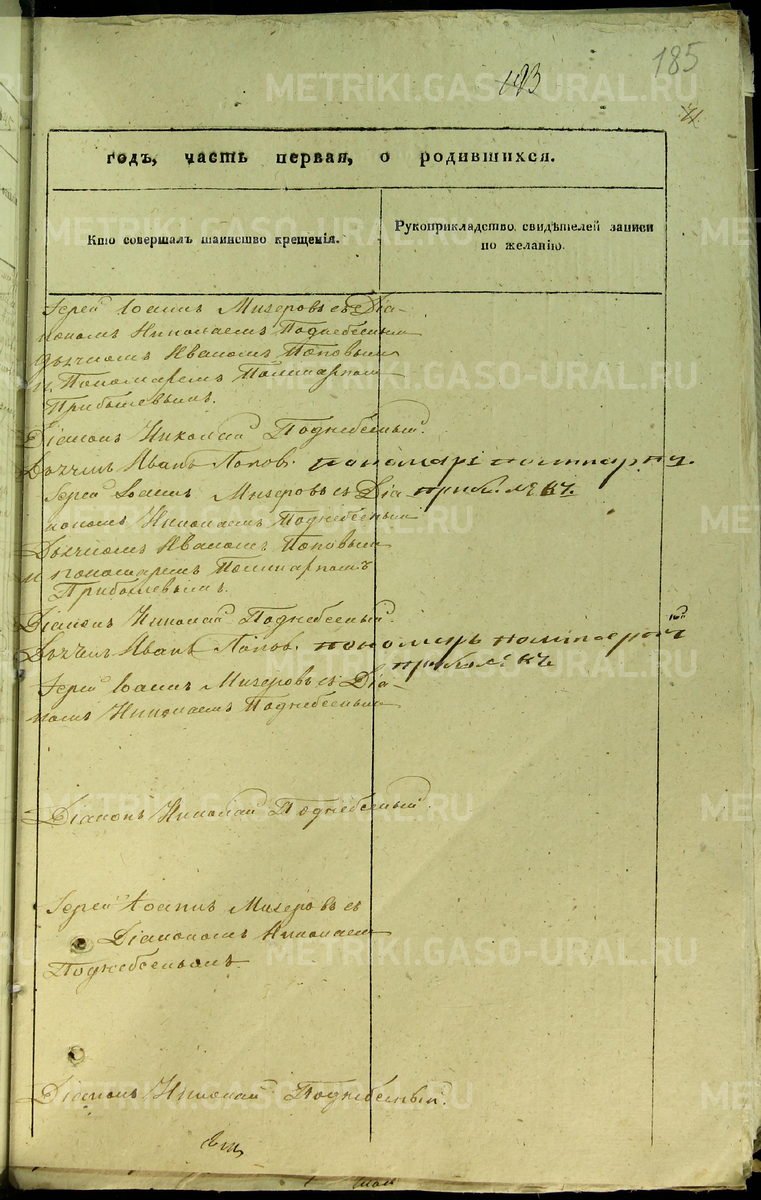 185
193
METRIKI.GASO-URAL.RU
годъ, часть первая, о родившихся.
Кто совершалъ таинство крещенія.
Рукоприкладство свидѣтелей записи по желанію.
Іерей Іоаннъ Мизеровъ съ Діа-
кономъ Николаемъ Поднебеснымъ
Дьячкомъ Иваномъ Поповымъ
и Пономаремъ Поликарпомъ
Прибылевымъ.
Діаконъ Николай Поднебесный.
Дьячекъ Иванъ Попов. пономарь поликарпъ
Іерей Іоаннъ Мизеровъ съ Діа- прибылевъ.
кономъ Николаемъ Поднебеснымъ
Дьячкомъ Иваномъ Поповымъ
и пономаремъ Поликарпомъ
Прибылевымъ.
Діаконъ Николай Поднебесный.
Дьячекъ Иванъ Попов. пономарь
Іерей Іоаннъ Мизеровъ съ Діа-
кономъ Николаемъ Поднебеснымъ
Діаконъ Николай Поднебесный.
METRIKI.GASO-URAL.RU
Іерей Іоаннъ Мизеровъ съ
Діакономъ Николаемъ
Поднебеснымъ.
Діаконъ Николай Поднебесный.